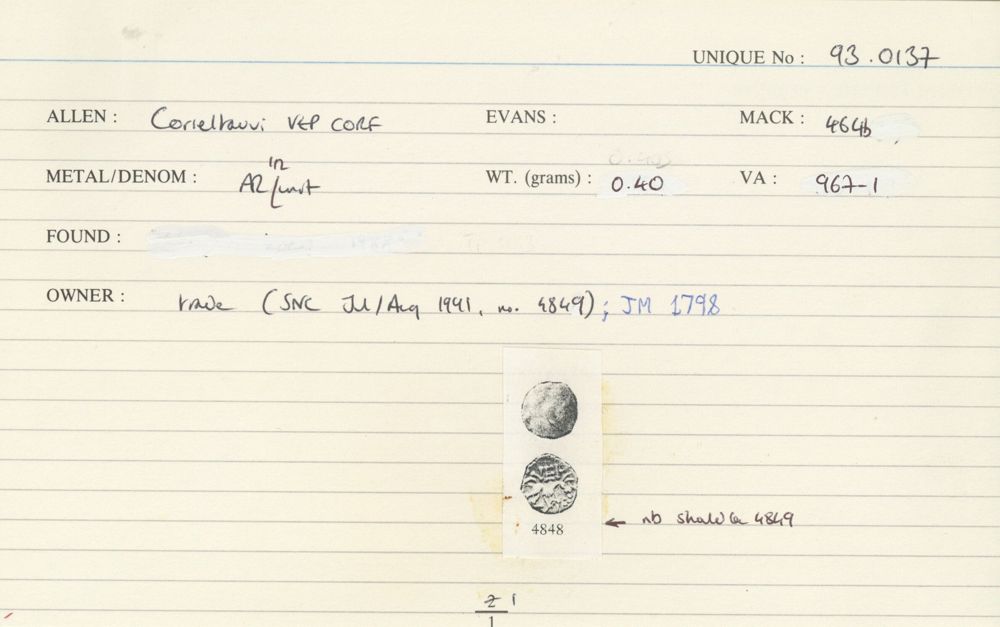 UNIQUE No : 93.0137
ALLEN : Corieltauvi VEP CORF EVANS : MACK : 464b
METAL/DENOM : AR/unit WT. (grams) : 0.40 VA : 967-1
FOUND :
OWNER : trade (SNC Jul/Aug 1991, no. 4849); JM 1798
VEP
4848 ← nb should be 4849
2 1
1